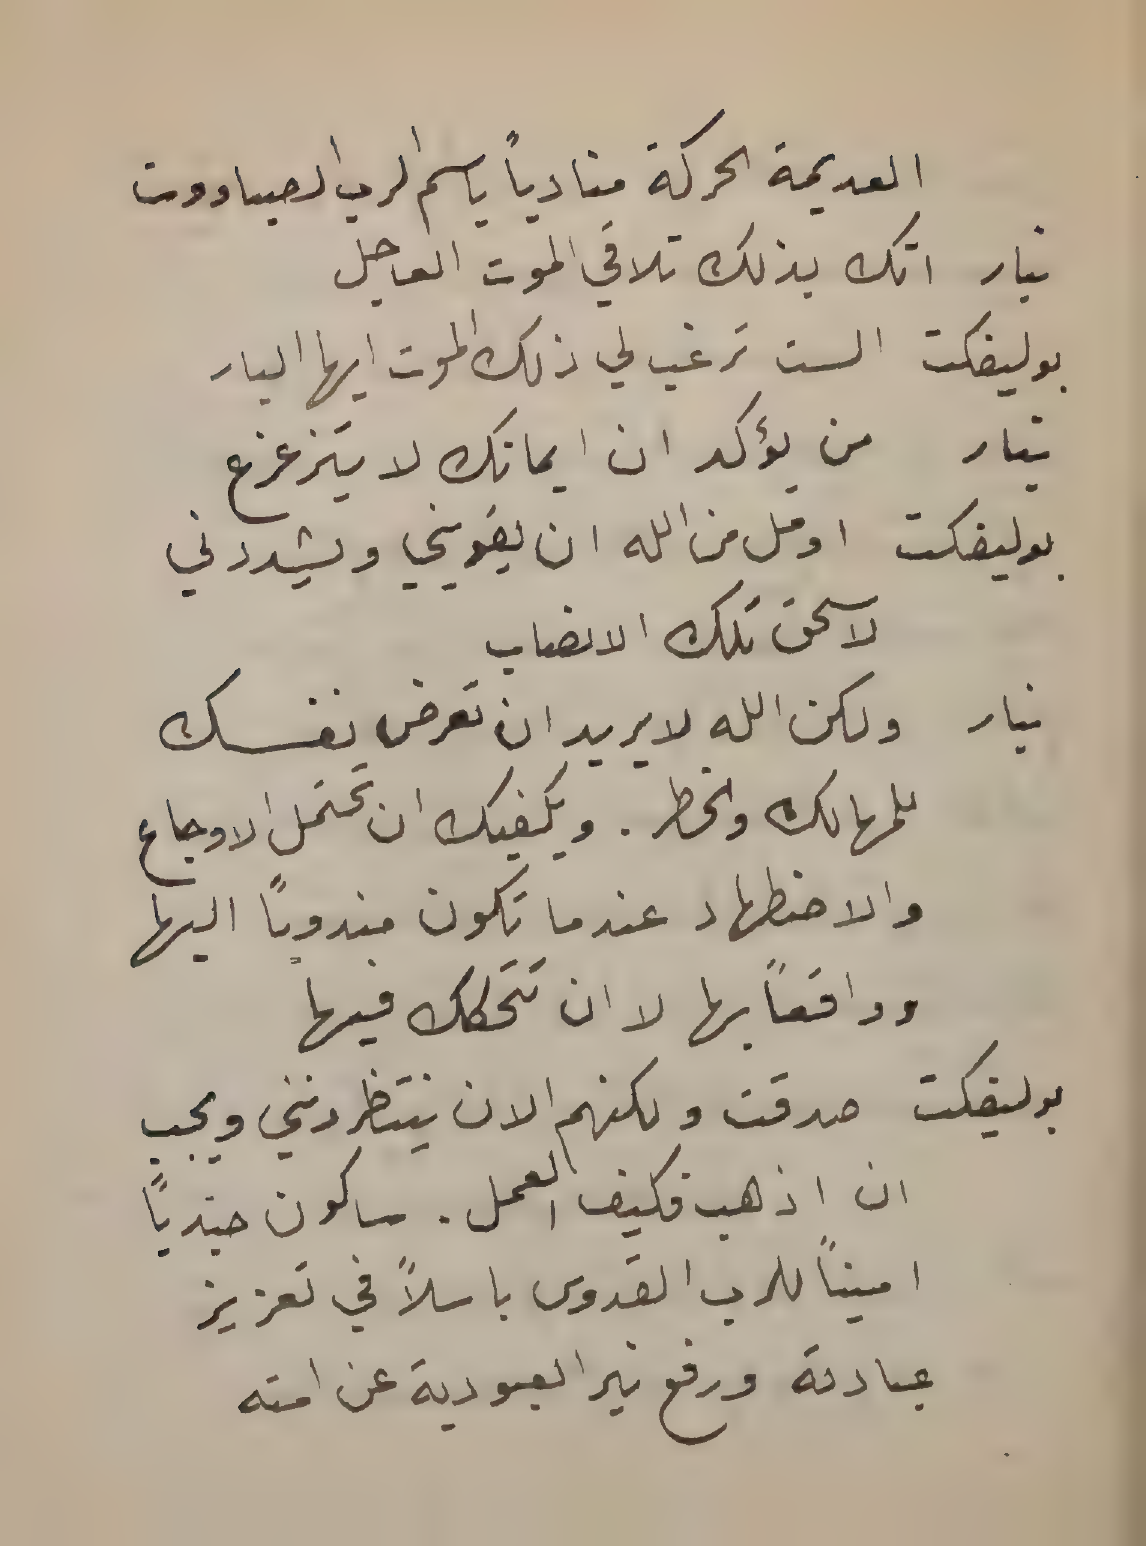 العديمة الحركة منادياً باسم الرب الصباووت
نيار انك بذلك تلاقي الموت العاجل
بوليفكت الست ترغب لي ذلك الموت ايها البار
نيار من يؤكد ان ايمانك لا يتزعزع
بوليفكت اومل من الله ان يقويني ويشددني
لاسحق تلك الانصاب
نيار ولكن الله لا يريد ان تعرض نفسك
للمهالك والخطر . ويكفيك ان تحتمل الاوجاع
والاضطهاد عندما تكون مندوباً اليها
وواقعاً بها لا ان تتحكك فيها
بوليفكت صدقت ولكنهم الان ينتظرونني ويجب
ان اذهب فكيف العمل . ساكون جندياً
اميناً للرب القدوس باسلاً في تعزيز
عبادته ورفع نير العبودية عن امته